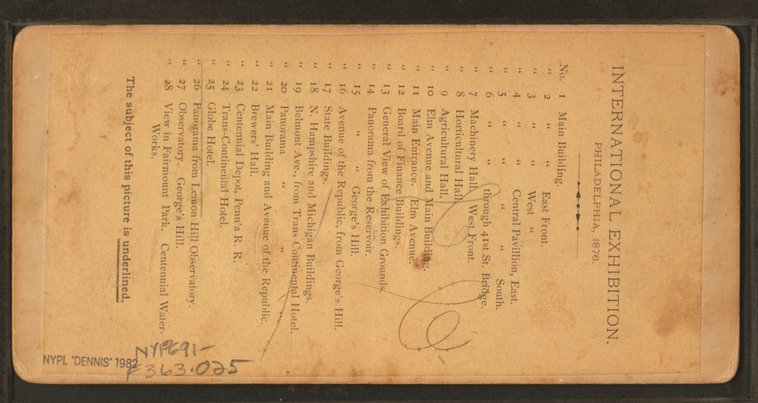 INTERNATIONAL EXHIBITION.
PHILADELPHIA, 1876.
No. 1 Main Building.
" 2 " " East Front.
" 3 " " West "
" 4 " " Central Pavillion, East.
" 5 " " " " South.
" 6 " " through 41st St. Bridge.
" 7 Machinery Hall, West Front.
" 8 Horticultural Hall.
" 9 Agricultural Hall.
" 10 Elm Avenue and Main Building.
" 11 Main Entrance. Elm Avenue.
" 12 Board of Finance Buildings.
" 13 General View of Exhibition Grounds.
" 14 Panorama from the Reservoir.
" 15 " " George's Hill.
" 16 Avenue of the Republic, from George's Hill.
" 17 State Buildings.
" 18 N. Hampshire and Michigan Buildings.
" 19 Belmont Ave., from Trans-Continental Hotel.
" 20 Panorama " " "
" 21 Main Building and Avenue of the Republic.
" 22 Brewers' Hall.
" 23 Centennial Depot, Penn'a R. R.
" 24 Trans-Continental Hotel.
" 25 Globe Hotel.
" 26 Panorama from Lemon Hill Observatory.
" 27 Observatory. George's Hill.
" 28 View in Fairmount Park. Centennial Water-
Works.
The subject of this picture is underlined.
NYPL 'DENNIS' 1982
NYPG91-
F363.025